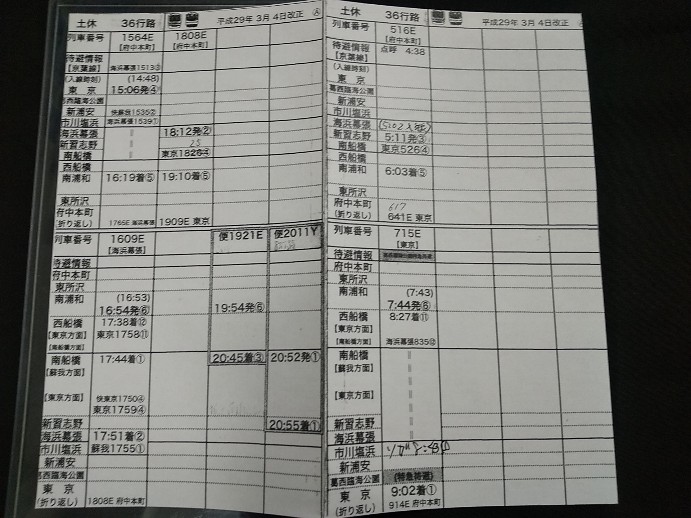 土休 36行路 平成29年 3月 4日改正 Ⓐ
列車番号 1564E 1808E
【府中本町】 【府中本町】
待避情報
【京葉線】 海浜幕張1513③
(入線時刻) (14:48)
東京 15:06発④
葛西臨海公園
新浦安 快蘇我1535②
市川塩浜 海浜幕張1539①
海浜幕張 || 18:12発②
新習志野 || 25
南船橋 || 東京1826④
西船橋
南浦和 16:19着⑤ 19:10着⑥
東所沢
府中本町
(折り返し) 1765E 海浜幕張 1909E 東京
列車番号 1609E 便1921E 便2011Y
【海浜幕張】
待避情報
府中本町
東所沢
南浦和 (16:53)
16:54発⑥ 19:54発⑥
西船橋 17:38着⑫
【東京方面】 東京1758⑪
【南船橋方面】
南船橋 17:44着① 20:45着③ 20:52発①
【蘇我方面】
【東京方面】 快東京1750④
東京1759④
新習志野 20:55着①
海浜幕張 17:51着②
市川塩浜 蘇我1755①
新浦安
葛西臨海公園
東京
(折り返し) 1808E 府中本町
土休 36行路 平成29年 3月 4日改正 Ⓐ
列車番号 516E
【府中本町】
待避情報 点呼 4:38
【京葉線】
(入線時刻)
東京
葛西臨海公園
新浦安
市川塩浜
海浜幕張
新習志野 5:11発③
南船橋 東京526④
西船橋
南浦和 6:03着⑤
東所沢
府中本町 617
(折り返し) 641E 東京
列車番号 715E
【東京】
待避情報
府中本町
東所沢
南浦和 (7:43)
7:44発⑥
西船橋 8:27着⑪
【東京方面】
【南船橋方面】 海浜幕張835⑫
南船橋 ||
【蘇我方面】 ||
【東京方面】 ||
新習志野 ||
海浜幕張 ||
市川塩浜
新浦安
葛西臨海公園 (特急待避)
東京 9:02着①
(折り返し) 914E 府中本町